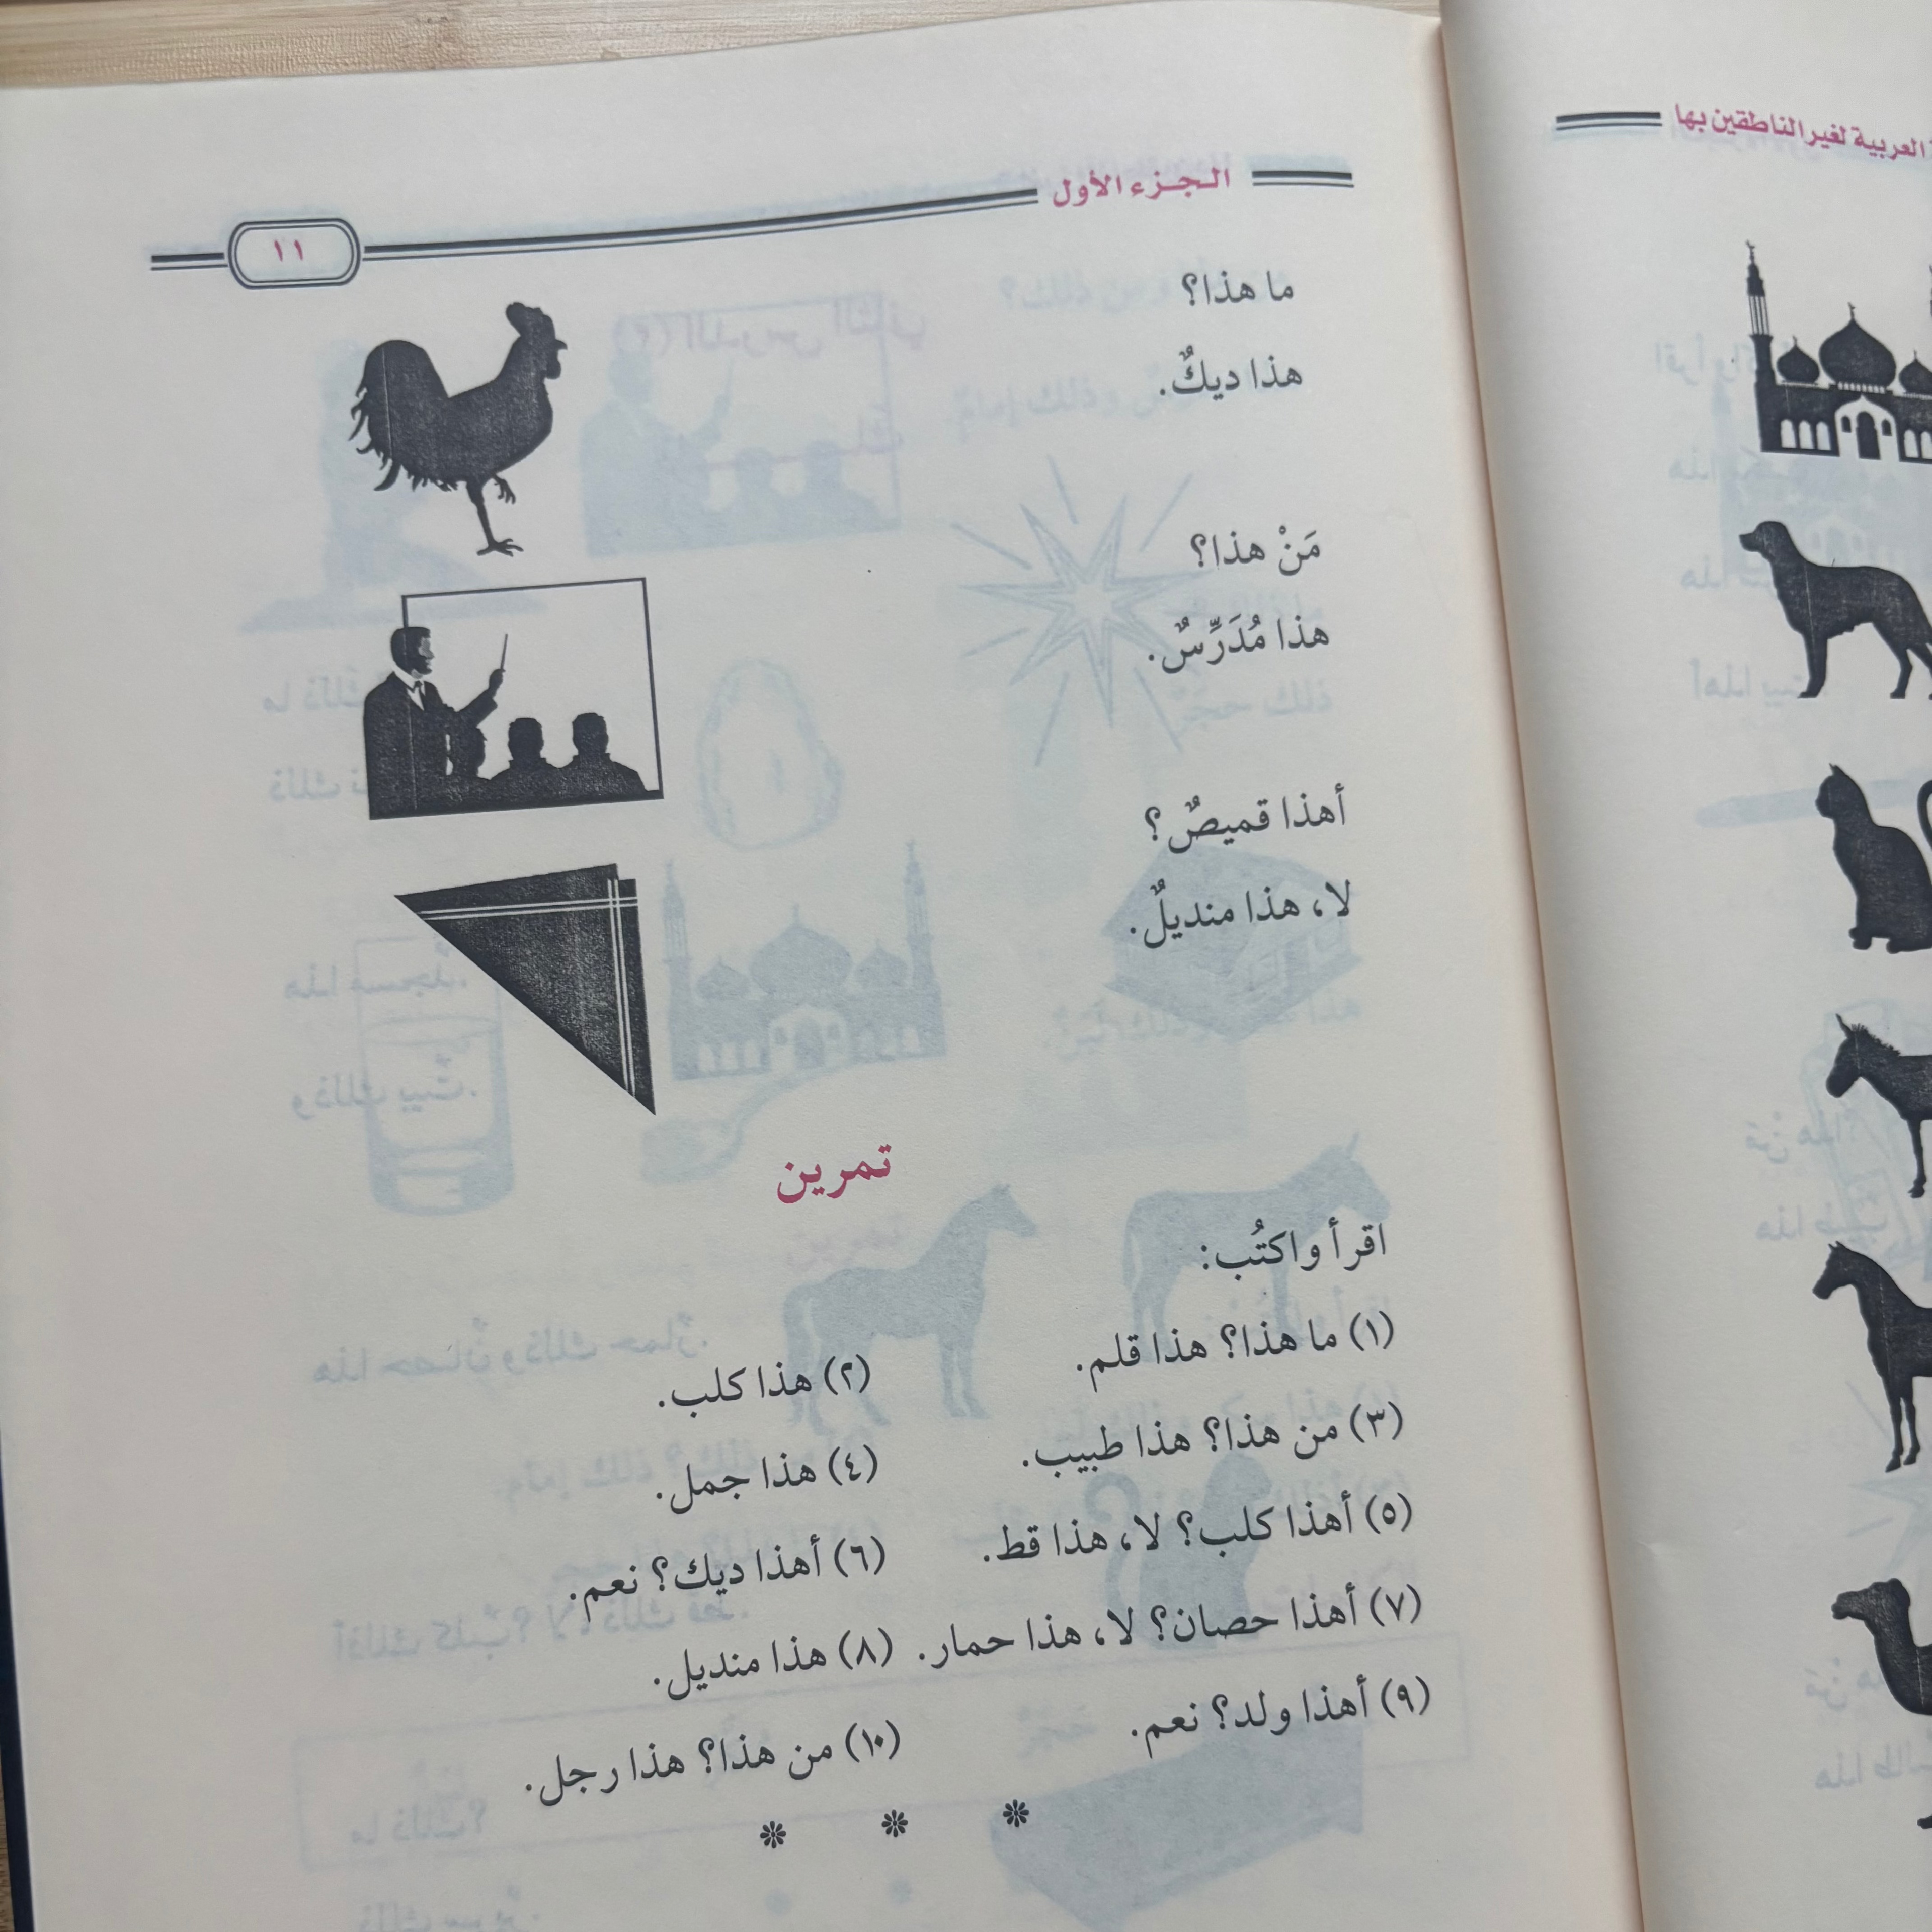 العربية لغير الناطقين بها
الجزء الأول
١١
ما هذا؟
هذا ديكٌ.
مَنْ هذا؟
هذا مُدَرِّسٌ.
أهذا قميصٌ؟
لا، هذا منديلٌ.
تمرين
اقرأ واكتُب:
(١) ما هذا؟ هذا قلم.
(٢) هذا كلب.
(٣) من هذا؟ هذا طبيب.
(٤) هذا جمل.
(٥) أهذا كلب؟ لا، هذا قط.
(٦) أهذا ديك؟ نعم.
(٧) أهذا حصان؟ لا، هذا حمار.
(٨) هذا منديل.
(٩) أهذا ولد؟ نعم.
(١٠) من هذا؟ هذا رجل.